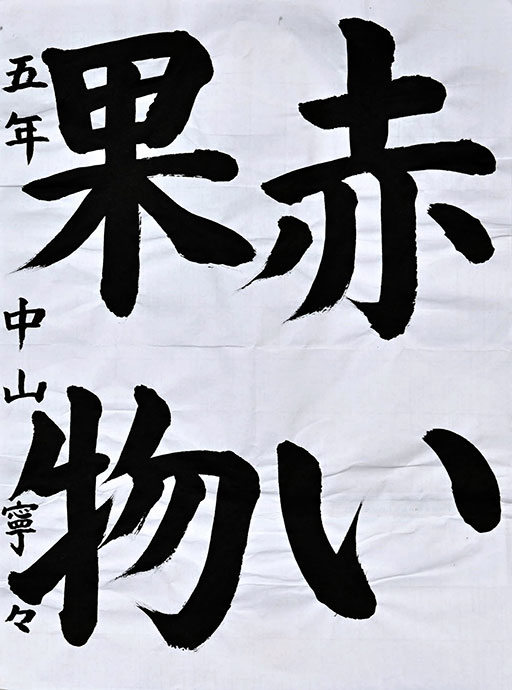 赤い
果物
五年 中山寧々